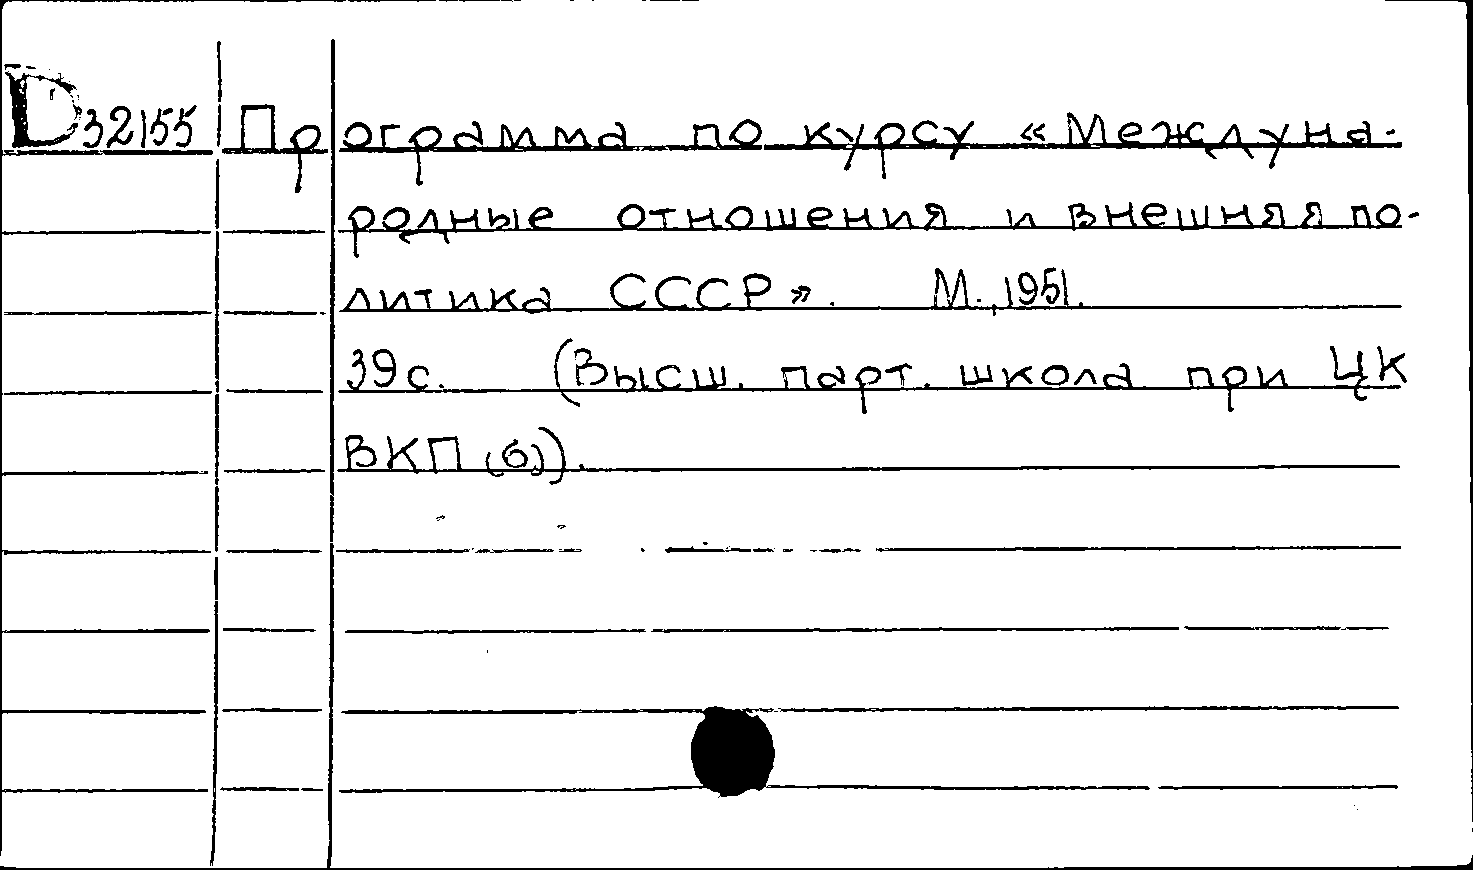 D32155 Программа по курсу «Междуна-
родные отношения и внешняя по-
литика СССР». М., 1951.
39с. (Высш. парт. школа при ЦК
ВКП(б)).